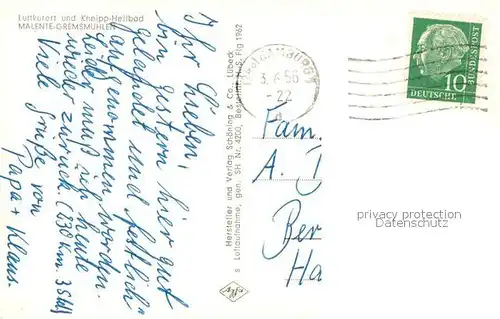 Luftkurort und Kneipp-Heilbad
MALENTE-GREMSMÜHLEN
Ihr Lieben,
bin gestern hier gut
gelandet und festlich
aufgenommen worden.
Leider muß ich heute
wieder zurück (230 km. 3 Std)
Viele Grüße von
Papa + Klaus.
Hersteller und Verlag Schöning & Co., Lübeck
s Luftaufnahme, gen. SH Nr. 4200, Bestell-Nr. S. Flg 1962
56
-22
10
DEUTSCHE
BUNDESPOST
Fam.
A. J
Ber
Ha
privacy protection
Datenschutz